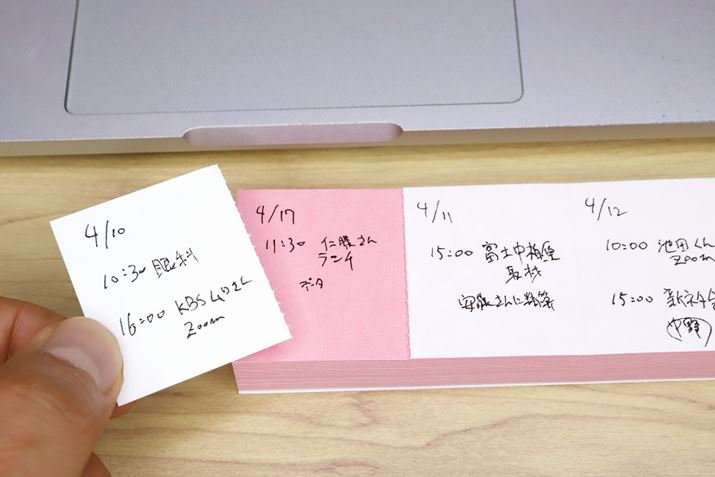 4/10
10:30 眼科
16:00 KBS さん
Zoom
4/17
11:30 仁藤さん
ランチ
データ
4/11
15:00 富士中
取材
安藤さんに
4/12
10:00 池田くん
Zoom
15:00
中野